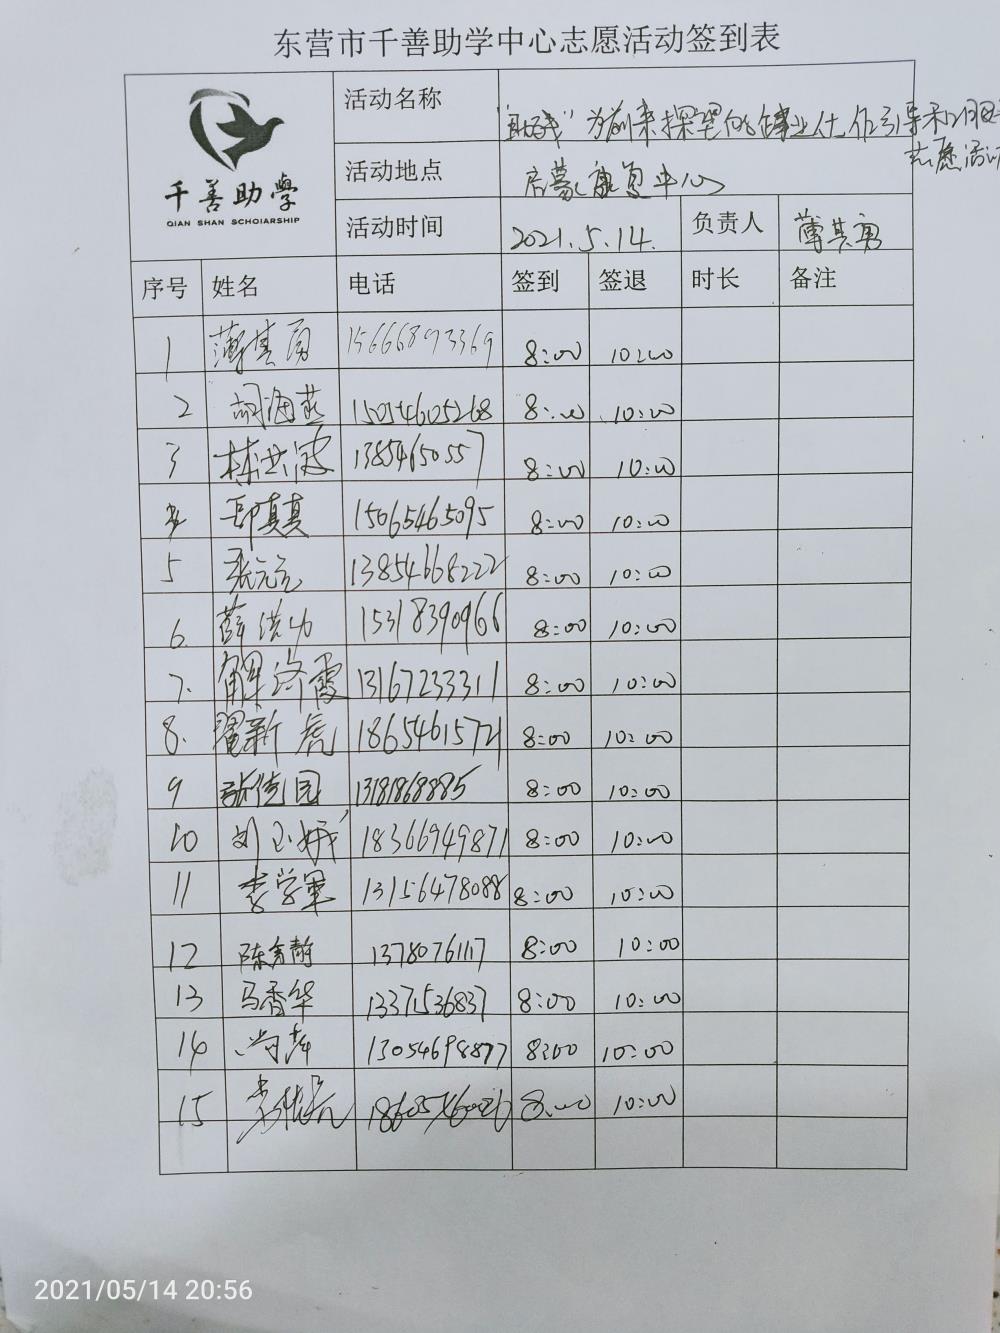 东营市千善助学中心志愿活动签到表
千善助學
QIAN SHAN SCHOIARSHIP
活动名称 "助残"为前来探望的事业仕作引导和服
志愿活动
活动地点 启蒙康复中心
活动时间 2021.5.14. 负责人 薄其勇
序号 姓名 电话 签到 签退 时长 备注
1 薄其勇 15666893369 8:00 10:00
2 胡海燕 15054605268 8:00 10:00
3 13854650557 8:00 10:00
4 邱真真 15065465095 8:00 10:00
5 张元元 13854668222 8:00 10:00
6. 薛洪功 15318390966 8:00 10:00
7. 解洛霞 13167233311 8:00 10:00
8. 翟新虎 18654615721 8:00 10:00
9 张佳园 13181868885 8:00 10:00
10 刘玉娥 18366949871 8:00 10:00
11 李学军 13156478088 8:00 10:00
12 陈秀静 13780761117 8:00 10:00
13 马香华 13371536837 8:00 10:00
14 尚萍 13054698877 8:00 10:00
15 8:00 10:00
2021/05/14 20:56